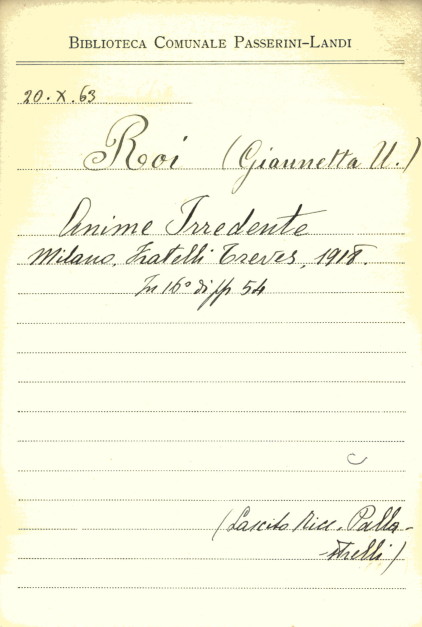 BIBLIOTECA COMUNALE PASSERINI-LANDI
20. X. 63
Roi (Giannetta U.)
Anime Irredente
Milano, Fratelli Treves, 1918.
In 16° di pp 54
(Lascito Nicc. Palla-
-strelli)